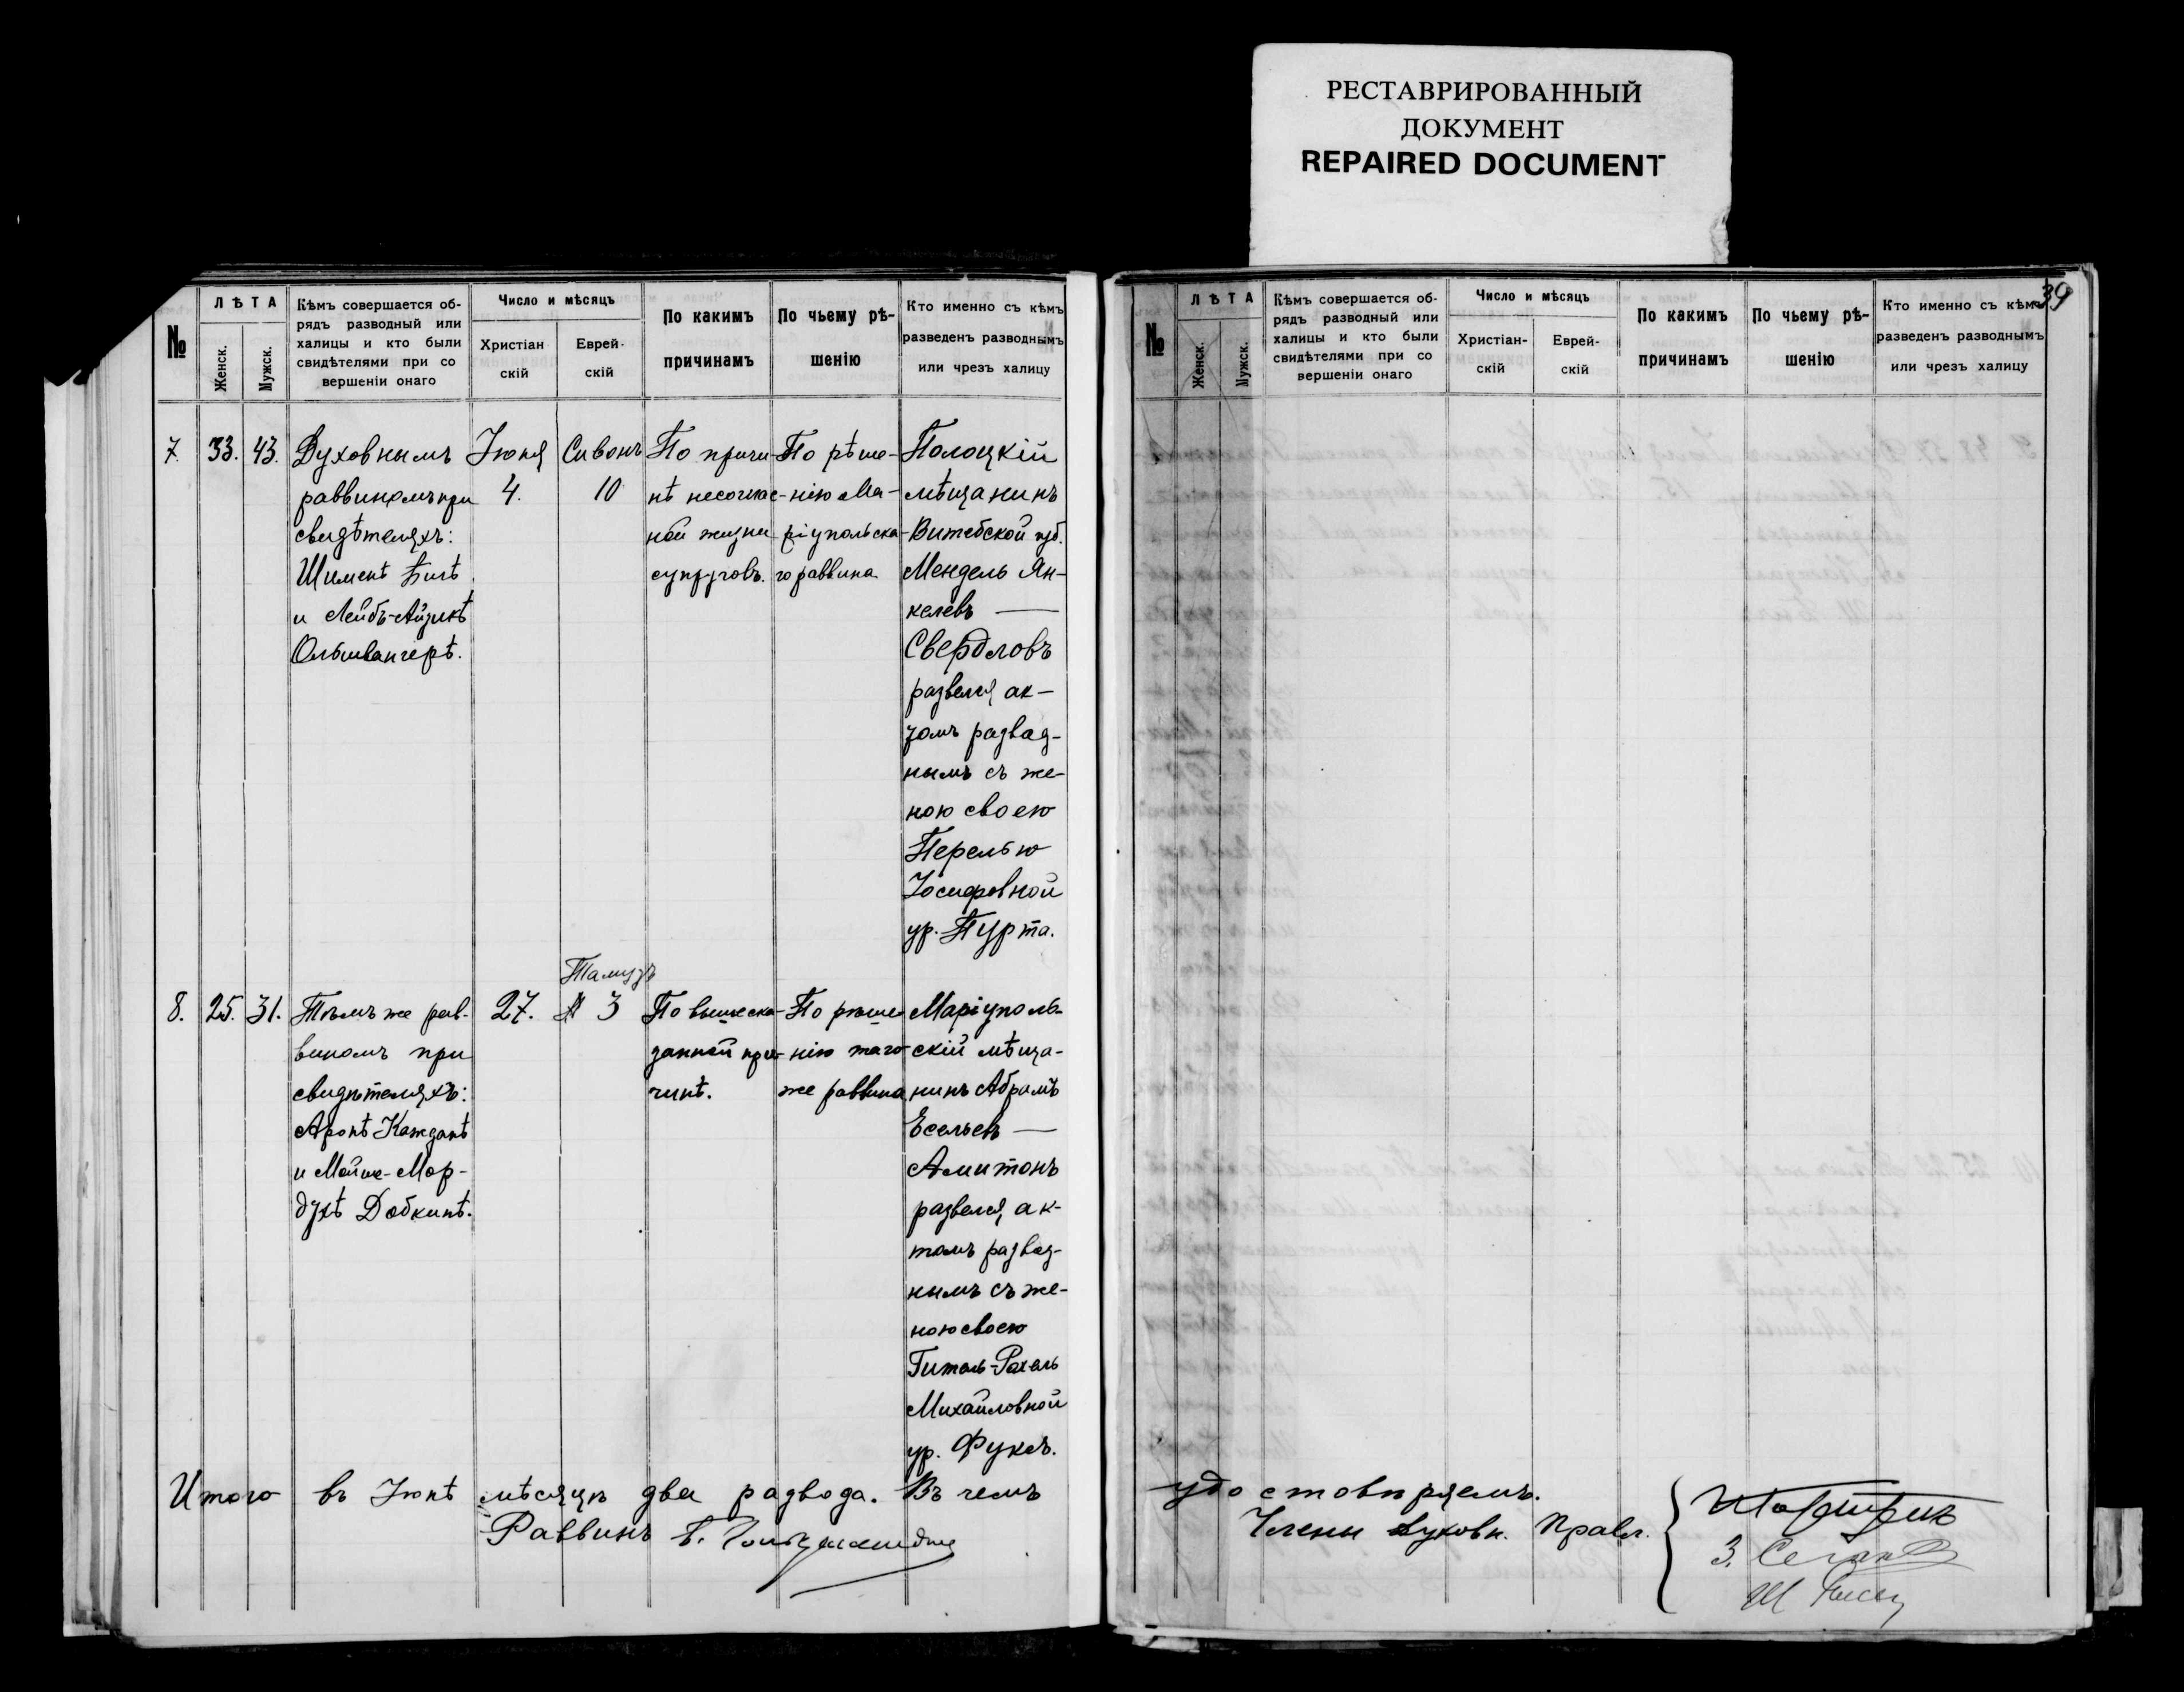 РЕСТАВРИРОВАННЫЙ
ДОКУМЕНТ
REPAIRED DOCUMENT
№
ЛѢТА
Женск.
Мужск.
Кѣмъ совершается об-
рядъ разводный или
халицы и кто были
свидѣтелями при со
вершеніи онаго
Число и мѣсяцъ
Христіан
скій
Еврей-
скій
По какимъ
причинамъ
По чьему рѣ-
шенію
Кто именно съ кѣмъ
разведенъ разводнымъ
или чрезъ халицу
7.
33.
43.
Духовнымъ
раввиномъ при
свидѣтеляхъ:
Шименѣ Билѣ
и Лейбъ-Айзикѣ
Ольшвангерѣ.
Іюня
4.
Сивонъ
10
По причи-
нѣ несоглас-
ной жизни
супруговъ.
По рѣше-
нію Ма-
ріупольска-
го раввина
Полоцкій
мѣщанинъ
Витебской губ.
Мендель Ян-
келевъ —
Свердловъ
развелся ак-
томъ развод-
нымъ съ же-
ною своею
Перелью
Іосифовной
ур. Пурта.
8.
25.
31.
Тѣмъ же рав-
виномъ при
свидѣтеляхъ:
Аронѣ Кажданѣ
и Мойше-Мор-
духѣ Добкинѣ.
27.
Тамузъ
3
По вышеска-
занной при-
чинѣ.
По рѣше-
нію того-
же раввина
Маріуполь-
скій мѣща-
нинъ Абрамъ
Есельев —
Амитонъ
развелся ак-
томъ развод-
нымъ съ же-
ною своею
Гитель-Рахель
Михайловной
ур. Фуксъ.
Итого въ Іюнѣ мѣсяцѣ два развода. Въ чемъ
Раввинъ
39
№
ЛѢТА
Женск.
Мужск.
Кѣмъ совершается об-
рядъ разводный или
халицы и кто были
свидѣтелями при со
вершеніи онаго
Число и мѣсяцъ
Христіан-
скій
Еврей-
скій
По какимъ
причинамъ
По чьему рѣ-
шенію
Кто именно съ кѣмъ
разведенъ разводнымъ
или чрезъ халицу
удостовѣряемъ.
Члены Духовн. Правл.